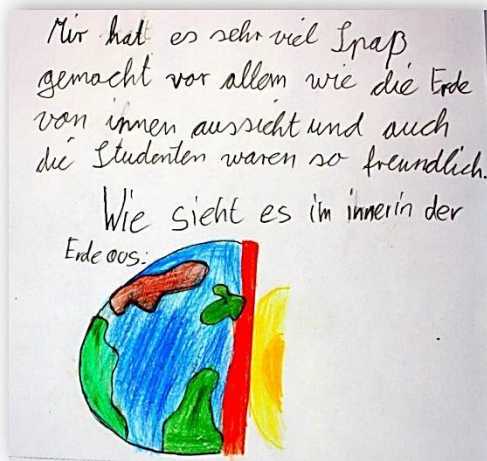 Mir hat es sehr viel Spaß
gemacht vor allem wie die Erde
von innen aussicht und auch
die Studenten waren so freundlich.
Wie sieht es im innerin der
Erde aus: